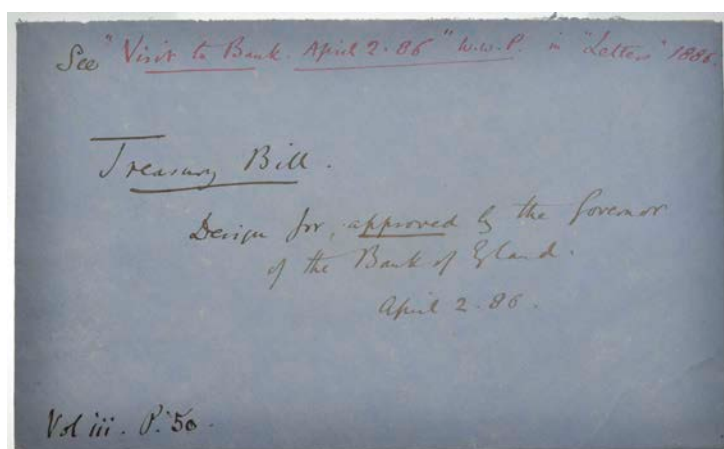 See "Visit to Bank. April 2. 86" W.W.P. in "Letters" 1886.
Treasury Bill.
Design for, approved by the Governor
of the Bank of Egland.
April 2. 86.
Vol iii. P. 50.